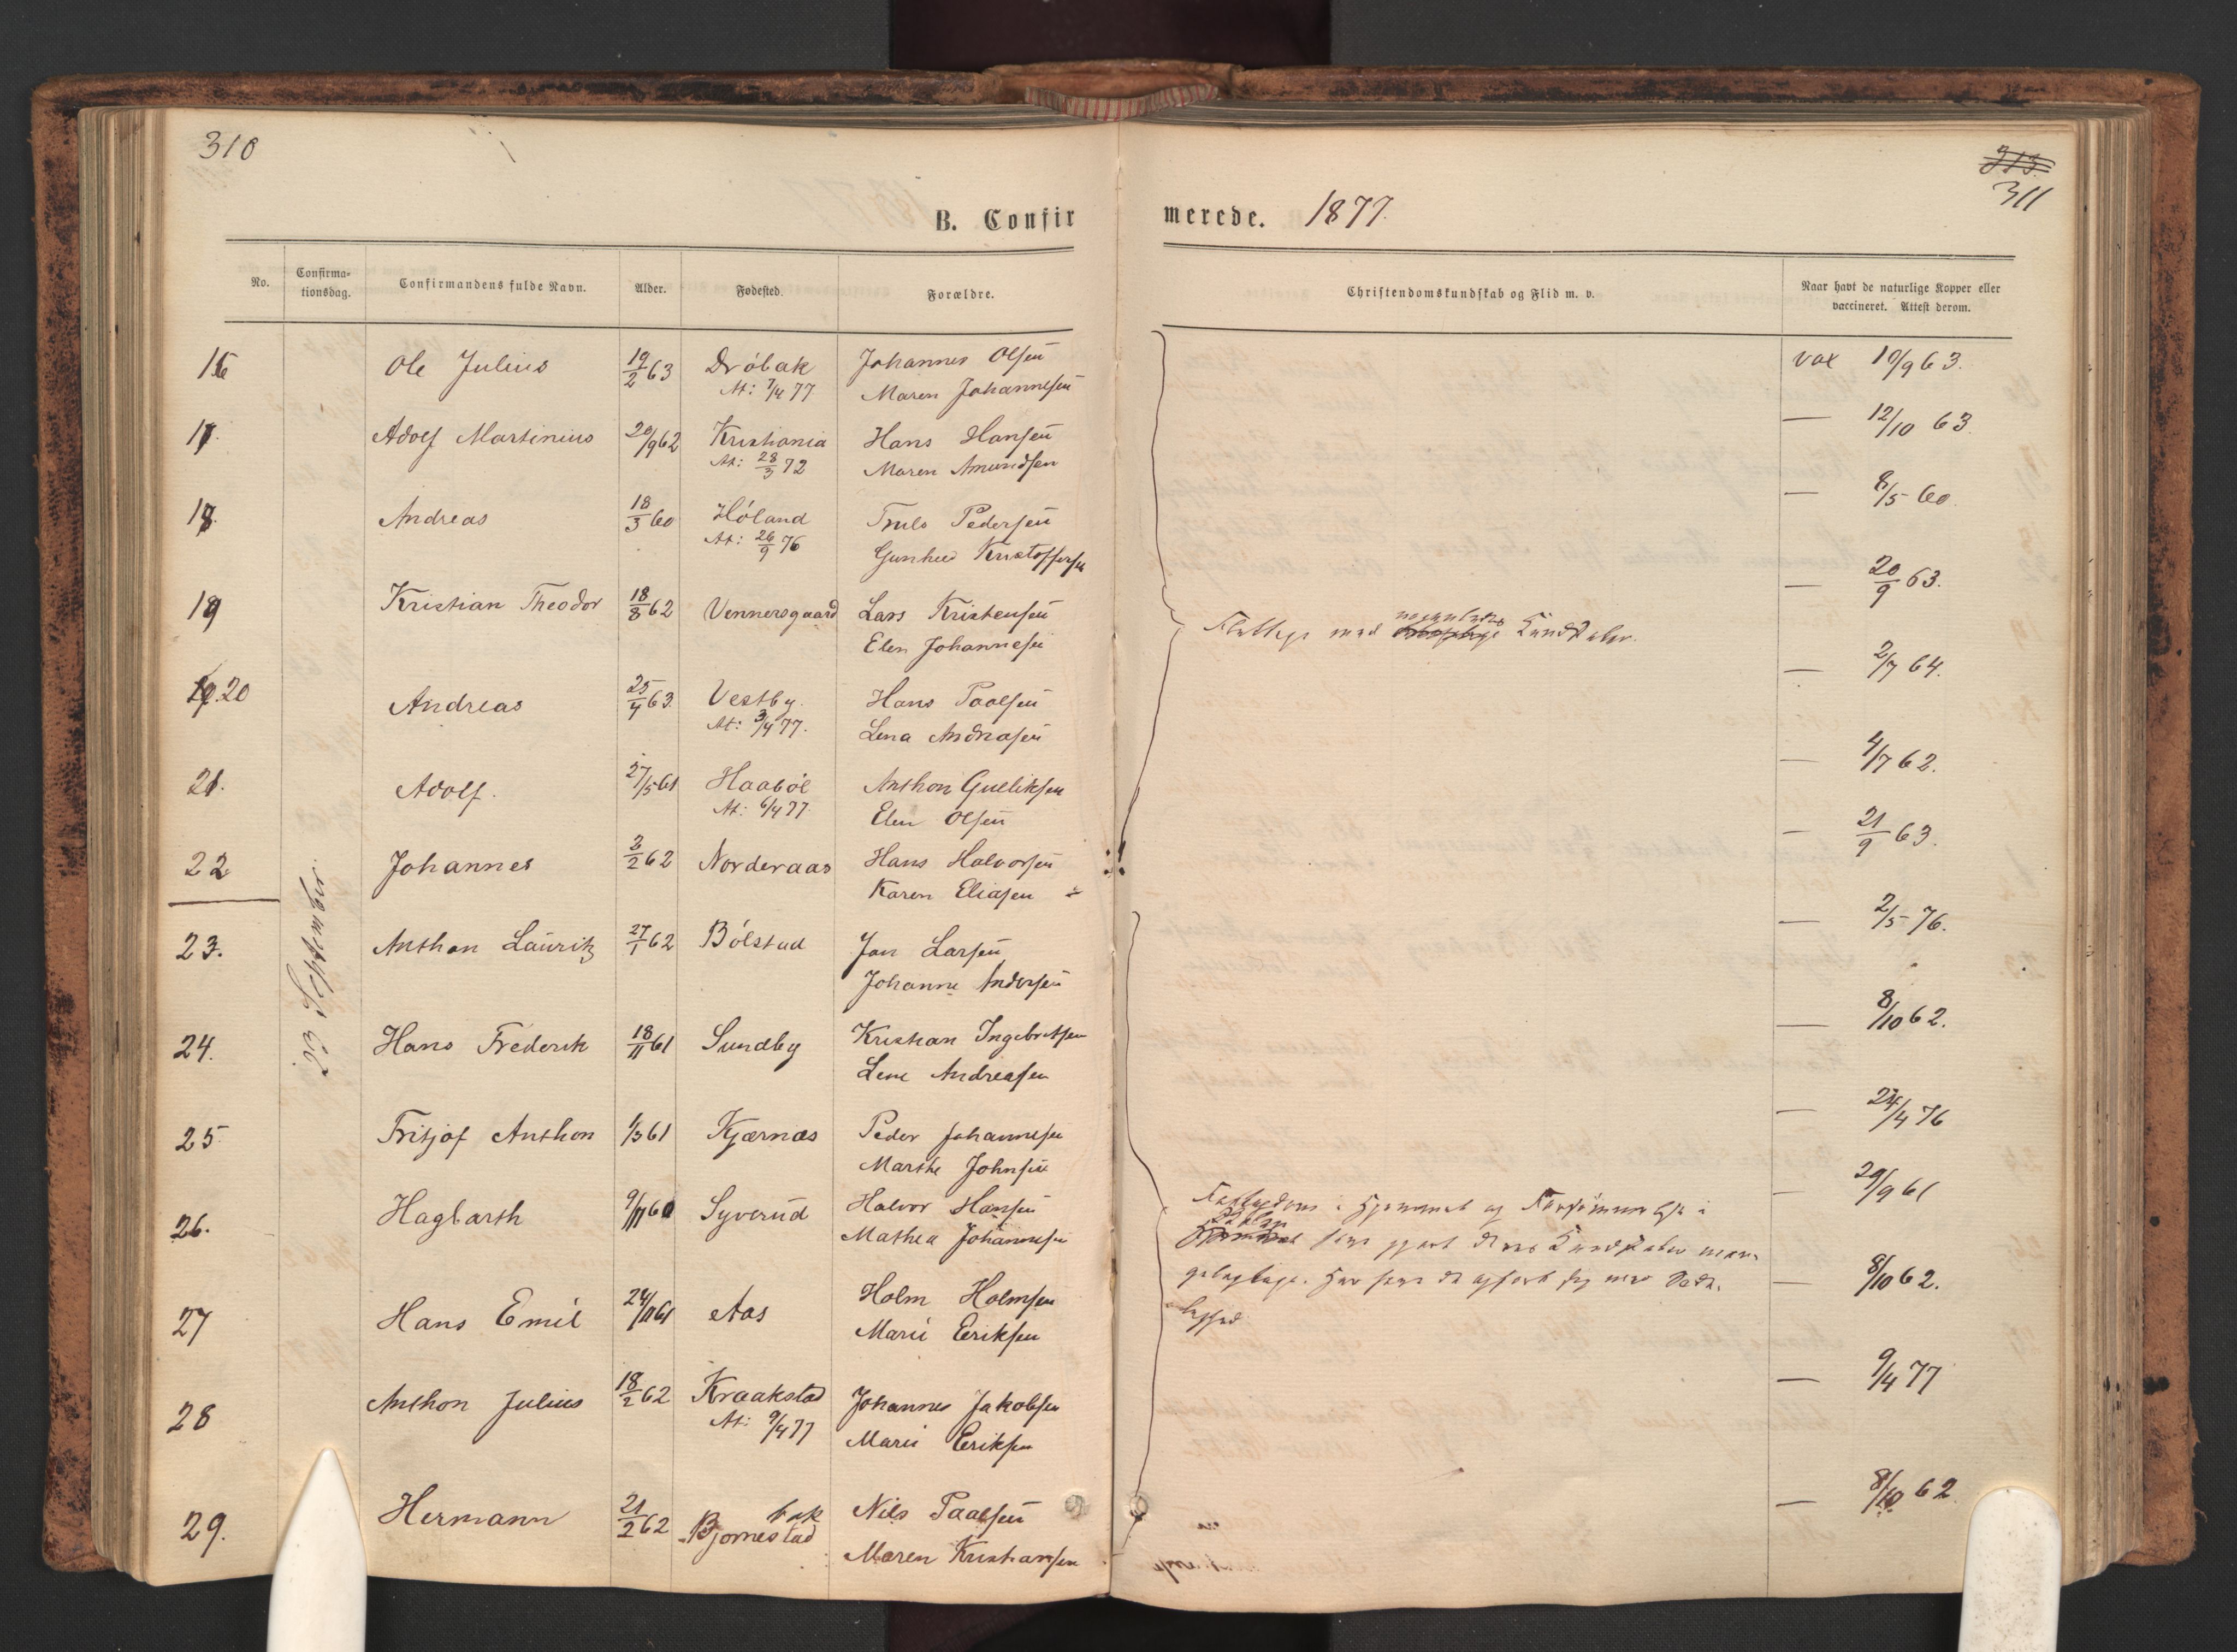 310
B. Confir
No.
Confirma-
tionsdag.
Confirmandens fulde Navn.
Alder.
Fødested.
Forældre.
23 September
16 Ole Julius 19/2 63 Drøbak Johannes Olsen
At: 7/4 77 Maren Johannesen
17. Adolf Martinius 20/9 62 Kristiania Hans Hansen
At: 28/3 72 Maren Amundsen
18. Andreas 18/3 60 Høland Truls Pedersen
At: 26/9 76 Gunhild Kristoffersen
19 Kristian Theodor 18/8 62 Vennersgaard Lars Kristensen
Elen Johannesen
20 Andreas 25/4 63 Vestby. Hans Paalsen
At: 3/4 77. Lena Andreasen
21. Adolf. 27/5 61 Haabøl Anthon Gulliksen
At: 6/4 77. Elen Olsen
22 Johannes 2/2 62 Norderaas Hans Halvorsen
Karen Eliasen
23. Anthon Lauritz 27/1 62 Bølstad Jan Larsen
Johanne Andersen
24. Hans Frederik 18/11 61 Sundby Kristian Ingebretsen
Lene Andreasen
25 Fritjof Anthon 1/3 61 Kjærnæs Peder Johannesen
Marthe Johnsen
26. Hagbarth 9/11 60 Syverud Halvor Hansen
Mathea Johannesen
27 Hans Emil 24/11 61 Aas Holm Holmsen
Marie Eriksen
28 Anthon Julius 18/2 62 Kraakstad Johannes Jakobsen
At: 9/4 77 Marie Eriksen
29. Hermann 21/2 62 Bjørnestad bak Nils Paalsen
Maren Kristiansen
313
311
merede. 1877.
Christendomskundskab og Flid m. v.
Naar havt de naturlige Kopper eller
vaccineret. Attest derom.
vax 19/9 63.
— 12/10 63.
— 8/5 60
— 20/9 63.
Flittige med Kundskaber.
— 2/7 64.
— 4/7 62.
— 21/9 63.
— 2/5 76.
— 8/10 62.
— 24/4 76
— 29/9 61
Fattigdom i Hjemmet og Forsømmelse i
Skolen
Hjemmet have gjort deres Kundskaber man-
gelagtige. Har have de opført sig med Søm-
— 8/10 62.
— 9/4 77
— 8/10 62